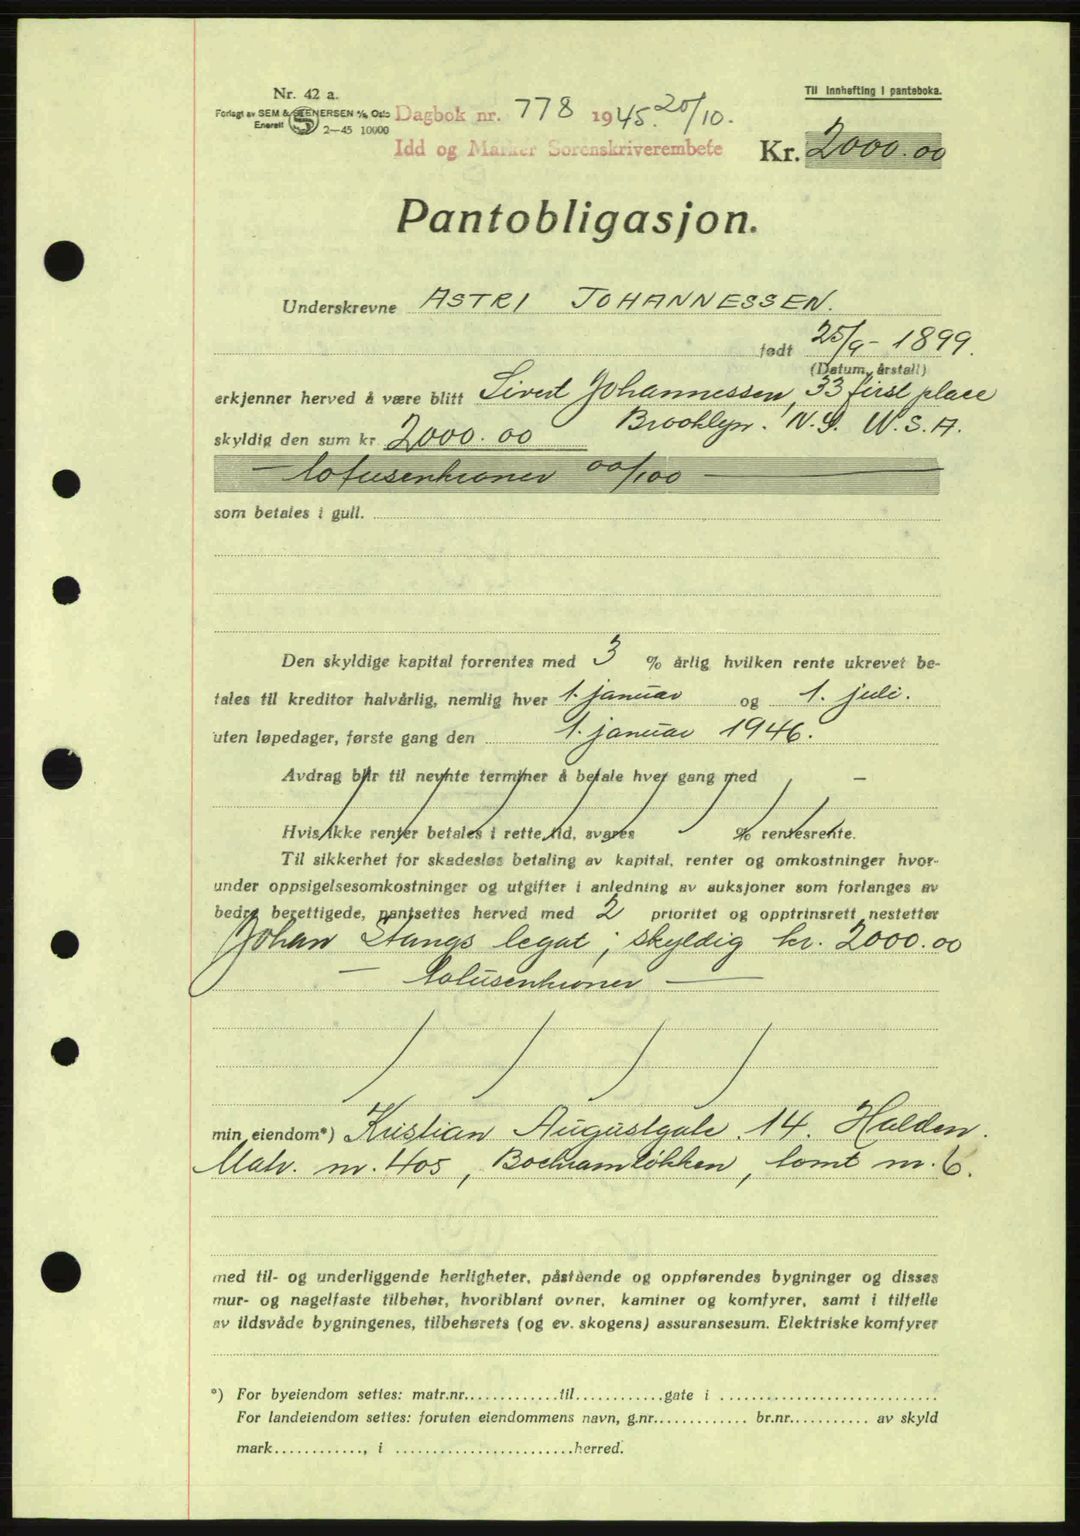 Nr. 42 a.
Forlagt av SEM & STENERSEN A/S, Oslo
Enerett 2—45 10000
Til innhefting i panteboka.
Dagbok nr. 778 1945. 20/10.
Idd og Marker Sorenskriverembete
Kr. 2000.00
Pantobligasjon.
Underskrevne ASTRI JOHANNESSEN.
født 25/9 - 1899.
(Datum, årstall)
erkjenner herved å være blitt Sivert Johannessen, 33 first place
Brooklyn. N.Y. U.S.A.
skyldig den sum kr. 2000.00
— totusenkroner 00/100 —
som betales i gull.
Den skyldige kapital forrentes med 3 % årlig hvilken rente ukrevet be-
tales til kreditor halvårlig, nemlig hver 1. januar og 1. juli.
uten løpedager, første gang den 1. januar 1946.
Avdrag blir til nevnte terminer å betale hver gang med —
Hvis ikke renter betales i rette tid, svares % rentesrente.
Til sikkerhet for skadesløs betaling av kapital, renter og omkostninger hvor-
under oppsigelsesomkostninger og utgifter i anledning av auksjoner som forlanges av
bedre berettigede, pantsettes herved med 2 prioritet og opptrinsrett nestetter
Johan Stangs legat; skyldig kr. 2000.00
— totusenkroner —
min eiendom*) Kristian Augustgate. 14. Halden.
Matr. nr. 405, løkken, tomt nr. 6.
med til- og underliggende herligheter, påstående og oppførendes bygninger og disses
mur- og nagelfaste tilbehør, hvoriblant ovner, kaminer og komfyrer, samt i tilfelle
av ildsvåde bygningenes, tilbehørets (og ev. skogens) assuransesum. Elektriske komfyrer
*) For byeiendom settes: matr.nr..............til.............gate i ...............................
For landeiendom settes: foruten eiendommens navn, g.nr............. br.nr........... av skyld
mark............., i ..........................herred.